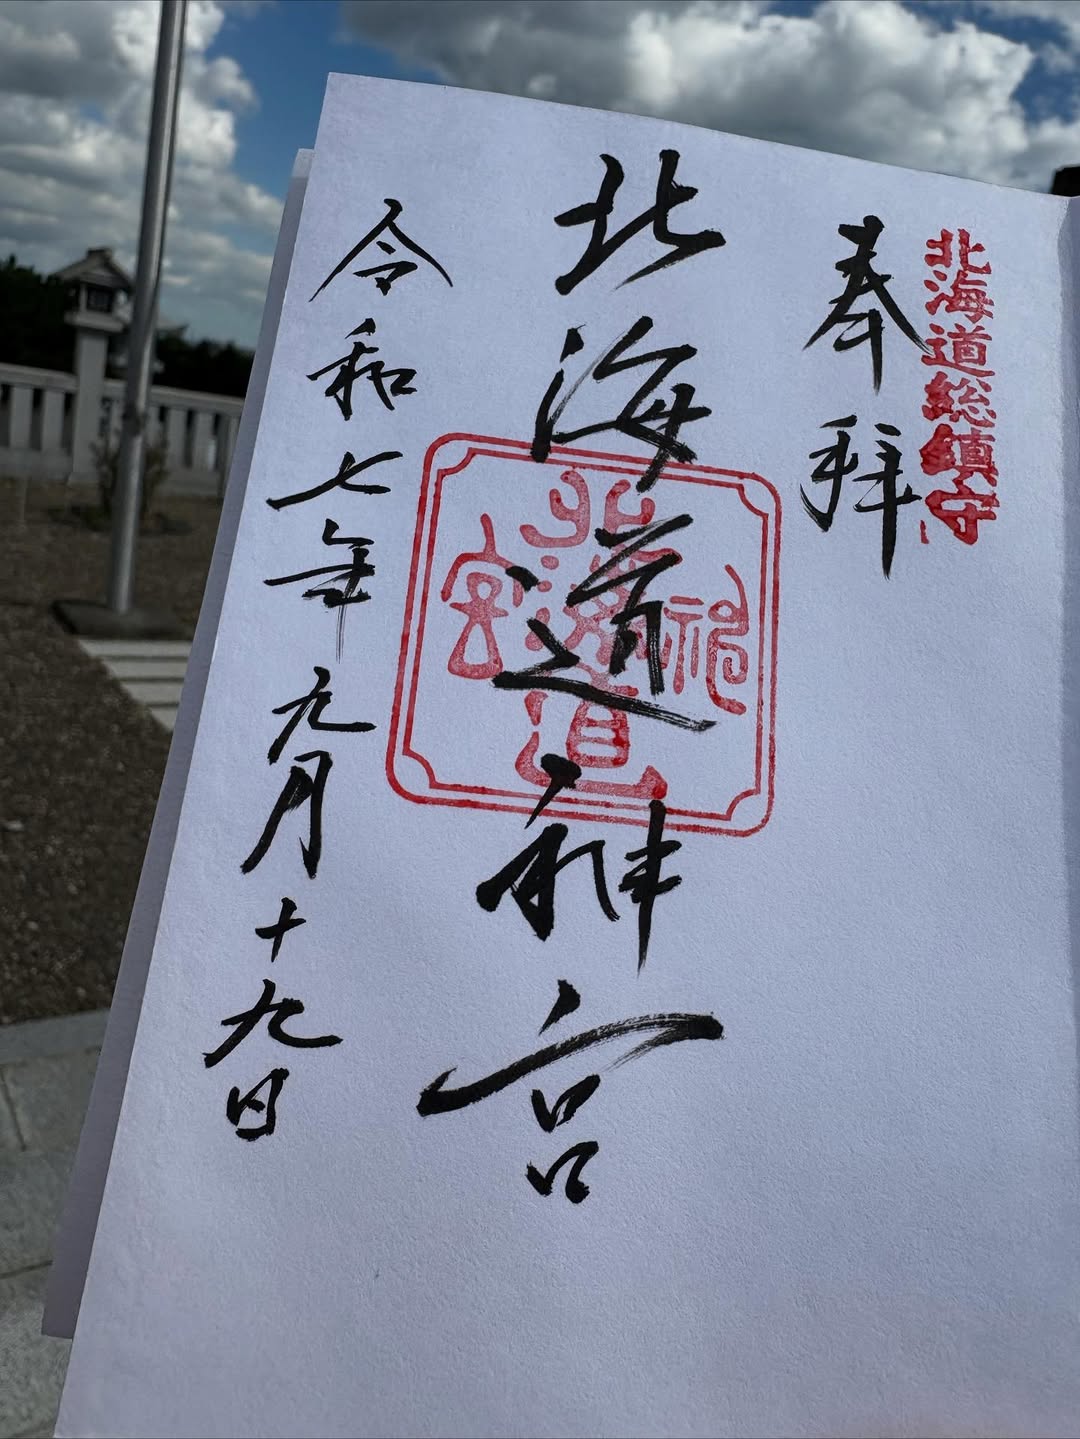 北海道総鎮守
奉拝
北海道神宮
北海道神宮
令和七年九月十九日